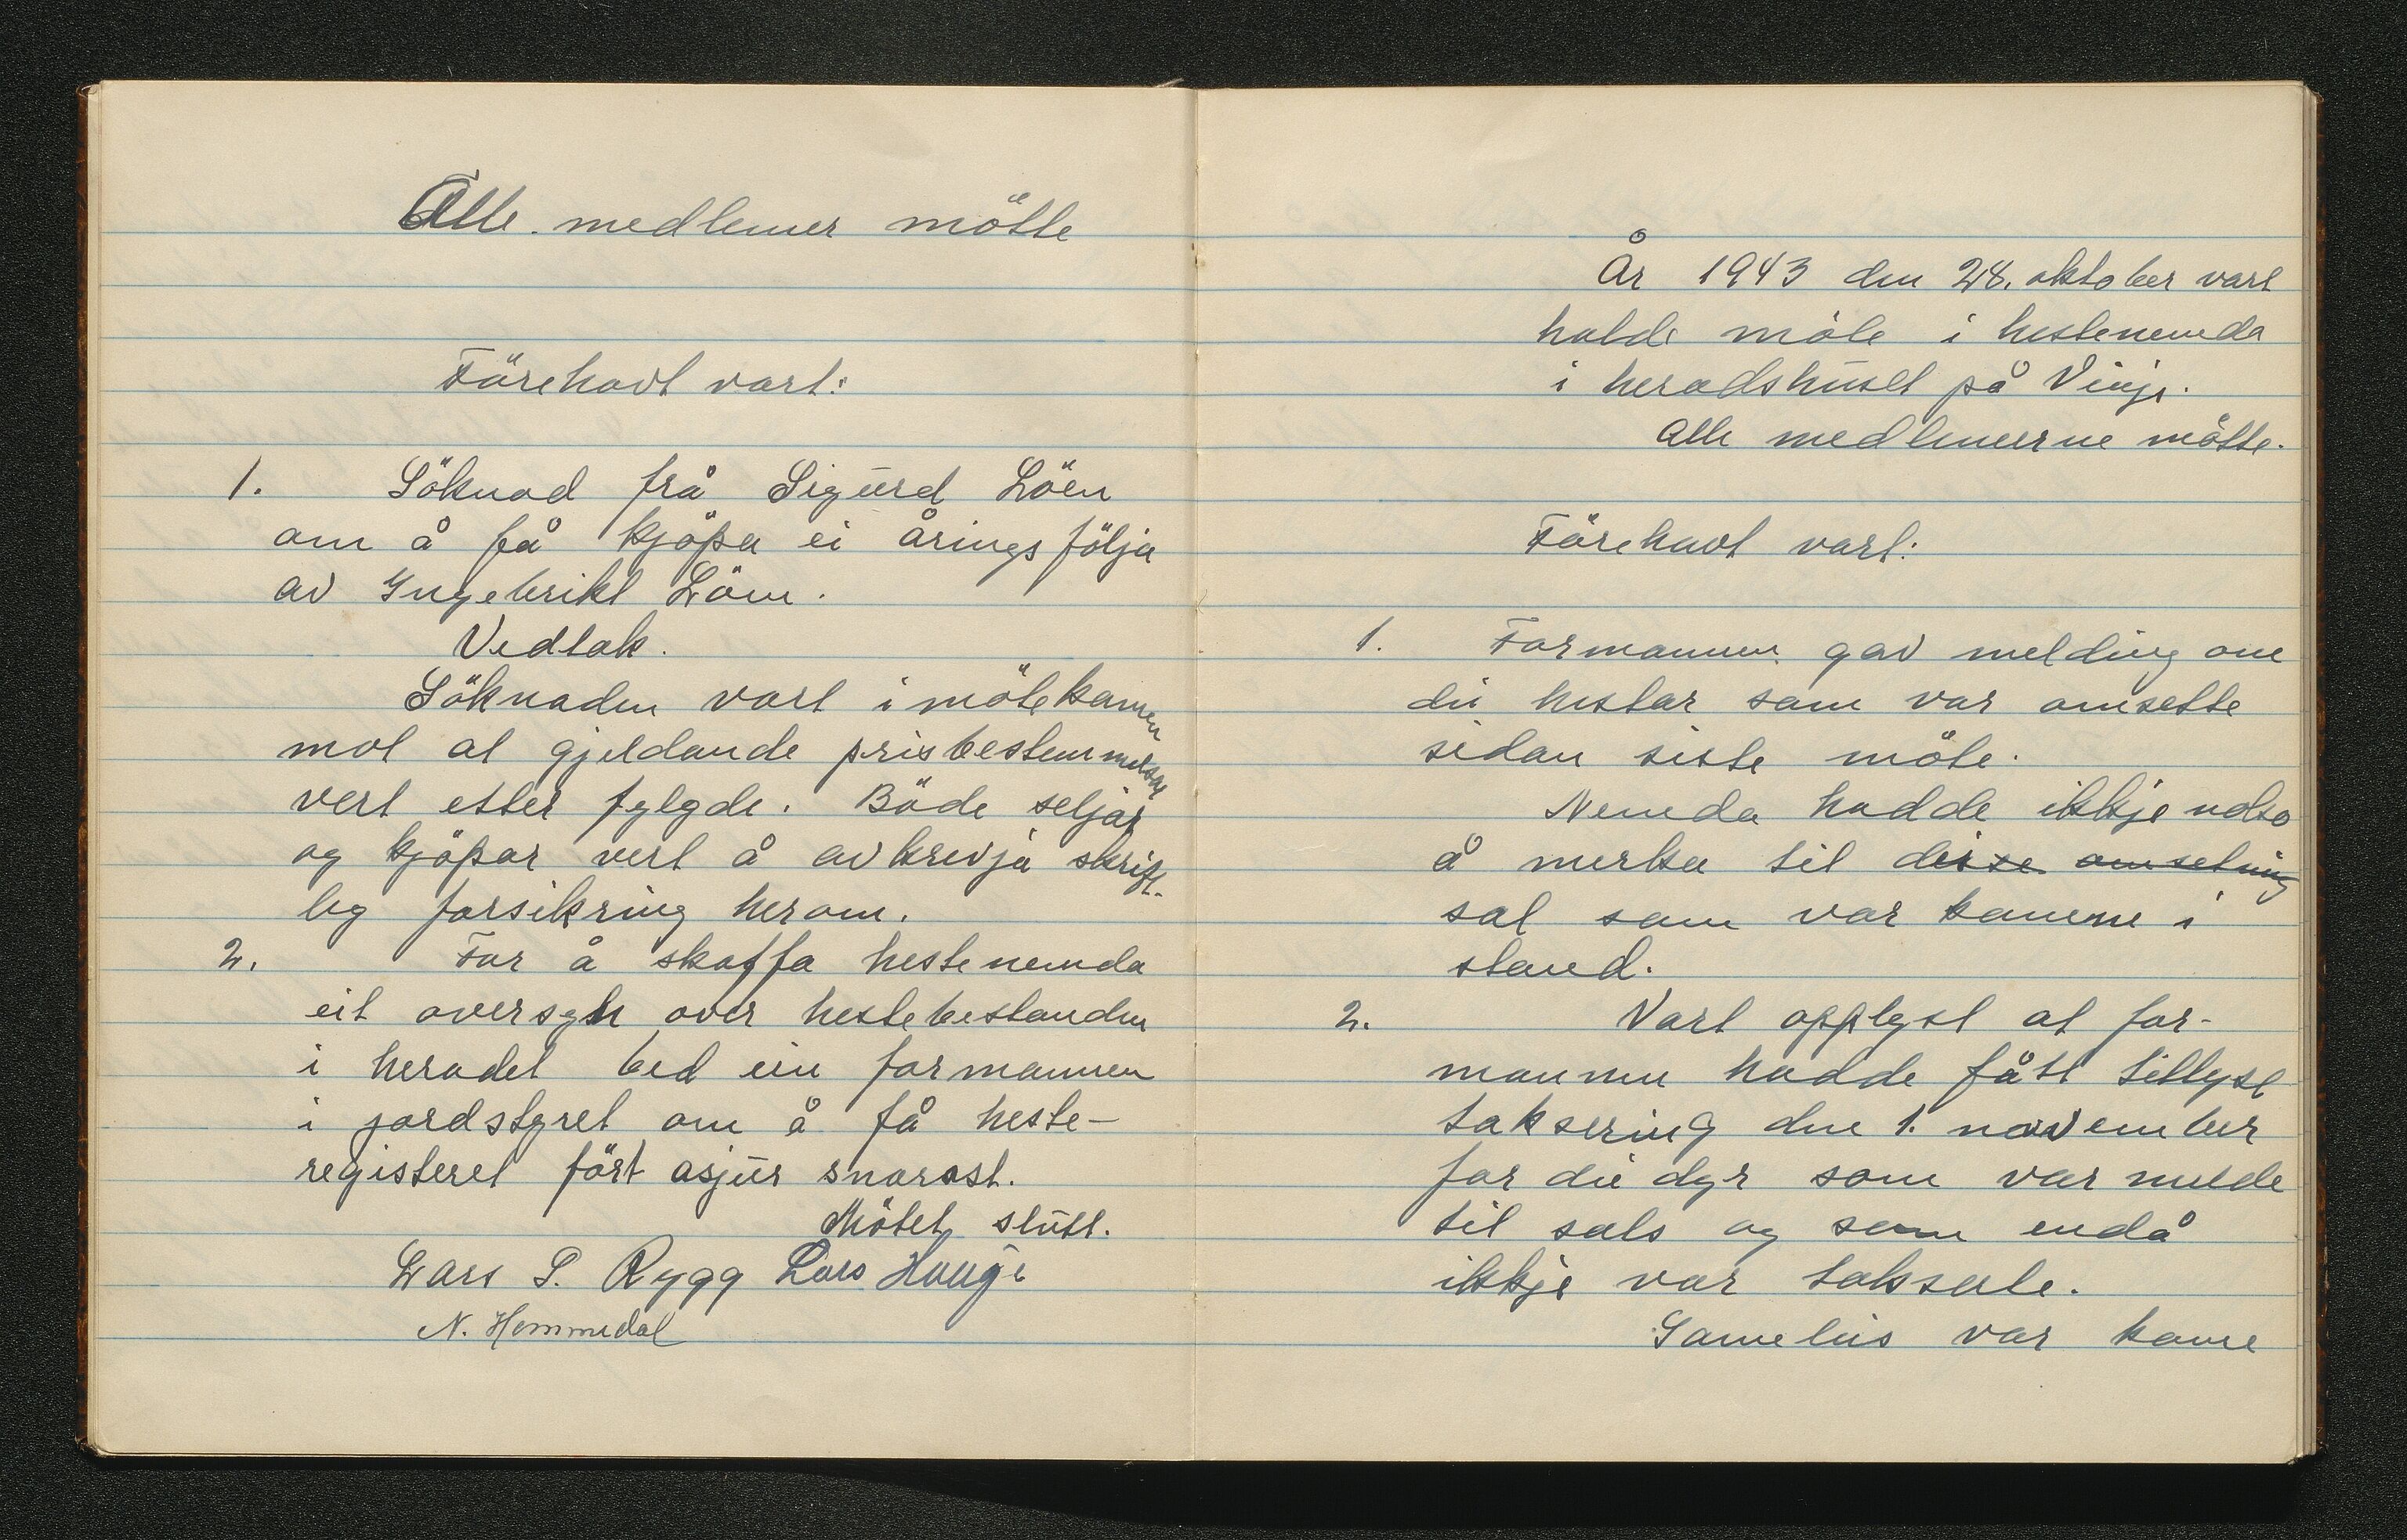 Alle medlemer mötte
Förehavt vart:
1. Söknad frå Sigurd Löen
om å få kjöpa ei årings följa
av Ingebrikt Löen.
Vedtak.
Söknaden vart imötekomen
mot at gjeldande prisbestemmelsar
vert etter fylgde. Både seljar
og kjöpar vert å avkrevja skrift-
leg forsikring herom.
2. For å skaffa hestenemda
eit oversyn over hestebestanden
i heradet bed ein formannen
i jordstyret om å få heste-
registeret fört asjur snarast.
Mötet slutt.
Lars S. Rygg Lars Hauge
N. Hommedal
År 1943 den 28. oktober vart
halde möte i hestenemda
i heradshuset på Vinje.
Alle medlemerne mötte.
Förehavt vart:
1. Formannen gav melding om
dei hestar som var omsette
sidan siste möte.
Nemda hadde ikkje noko
å merka til disse omsetning
sal som var komne i
stand.
2. Vart opplyst at for-
mannen hadde fått tillyst
taksering den 1. november
for dei dyr som var melde
til sals og som endå
ikkje var takserte.
Sameleis var kome